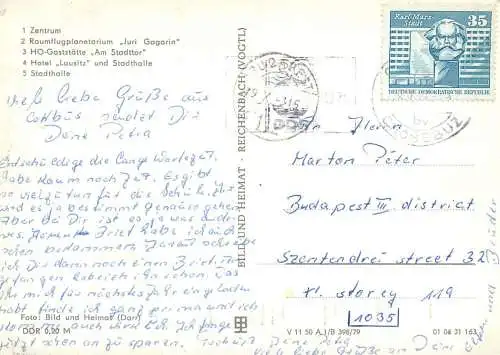 1 Zentrum
2 Raumflugplanetarium "Juri Gagarin"
3 HO-Gaststätte "Am Stadttor"
4 Hotel "Lausitz" und Stadthalle
5 Stadthalle
Liebe Grüße aus
Cottbus sendet Dir
Deine Petra
Entschuldige die lange Wartezeit.
Habe kaum noch Zeit. Es gibt
so viel zu tun für die Schule.
wird es ja bestimmt genauso gehen.
Aber bei Dir ist es ja was ande-
res. Brief habe ich auch
schon bekommen. Darauf schreibe
ich Dir dann noch einen Brief.
gefangen habe ich ihn schon. Das
Ihr mich für nächstes Jahr eingeladen
habt finde ich ganz prima und ich
auch schon an zu sparen. Tschüß Deine Petra
Viele liebe Grüße an Deine
Eltern und
BILD UND HEIMAT REICHENBACH (VOGTL)
Karl-Marx-Stadt
35
DEUTSCHE DEMOKRATISCHE REPUBLIK
An Herrn
Marton Péter
Budapest III. district
Szentendrei street 32
II. storey 119
1035
Foto: Bild und Heimat (Darr)
DDR 0,20 M
V 11 50 A 1/B 398/79
01 06 31 163